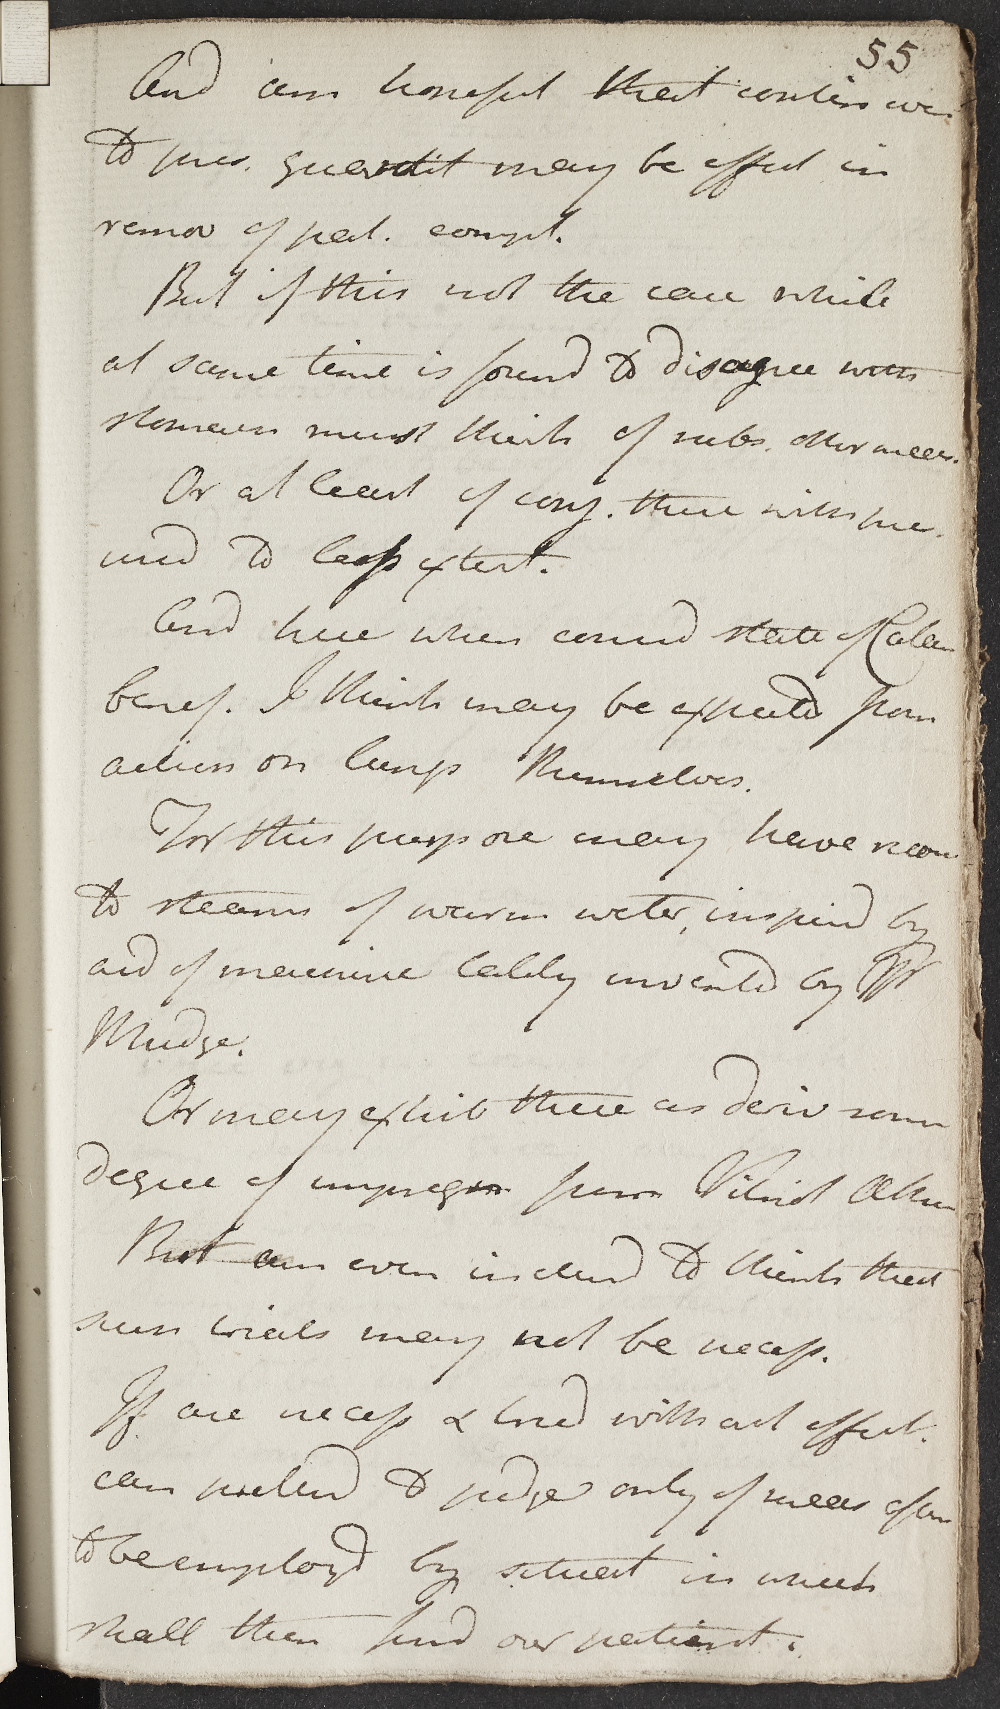 55
And am hopeful that contin use
to pres. quantit may be effect in
remov of pect. compl.
But if this not the case while
at same time is found to disagree with
stomach must think of subs. other meas.
Or at least of conj. these with pre.
med to less extent.
And here when consid state of Calam
benef. I think may be expected from
action on lungs themselves.
For this purpose may have recou
to steams of warm water, inspird by
aid of machine lately invented by Mr
Mudge.
Or may exhib these as deriv some
degree of impregn from Vitriol Æther
But am even inclind to think that
such trials may not be necess.
If are necess & tried without effect.
can pretend to judge only of meas often
to be employd by situat in which
shall then find our patient.